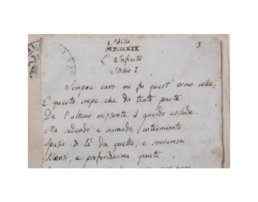 Idilli
MDCCCXIX
3
L'Infinito
Idillio I
Sempre caro mi fu quest'ermo colle,
E questa siepe, che da tanta parte
De l'ultimo orizzonte il guardo esclude.
Ma sedendo e mirando, l'interminato
Spazio di là da quella, e sovrumani
Silenzi, e profondissima quiete